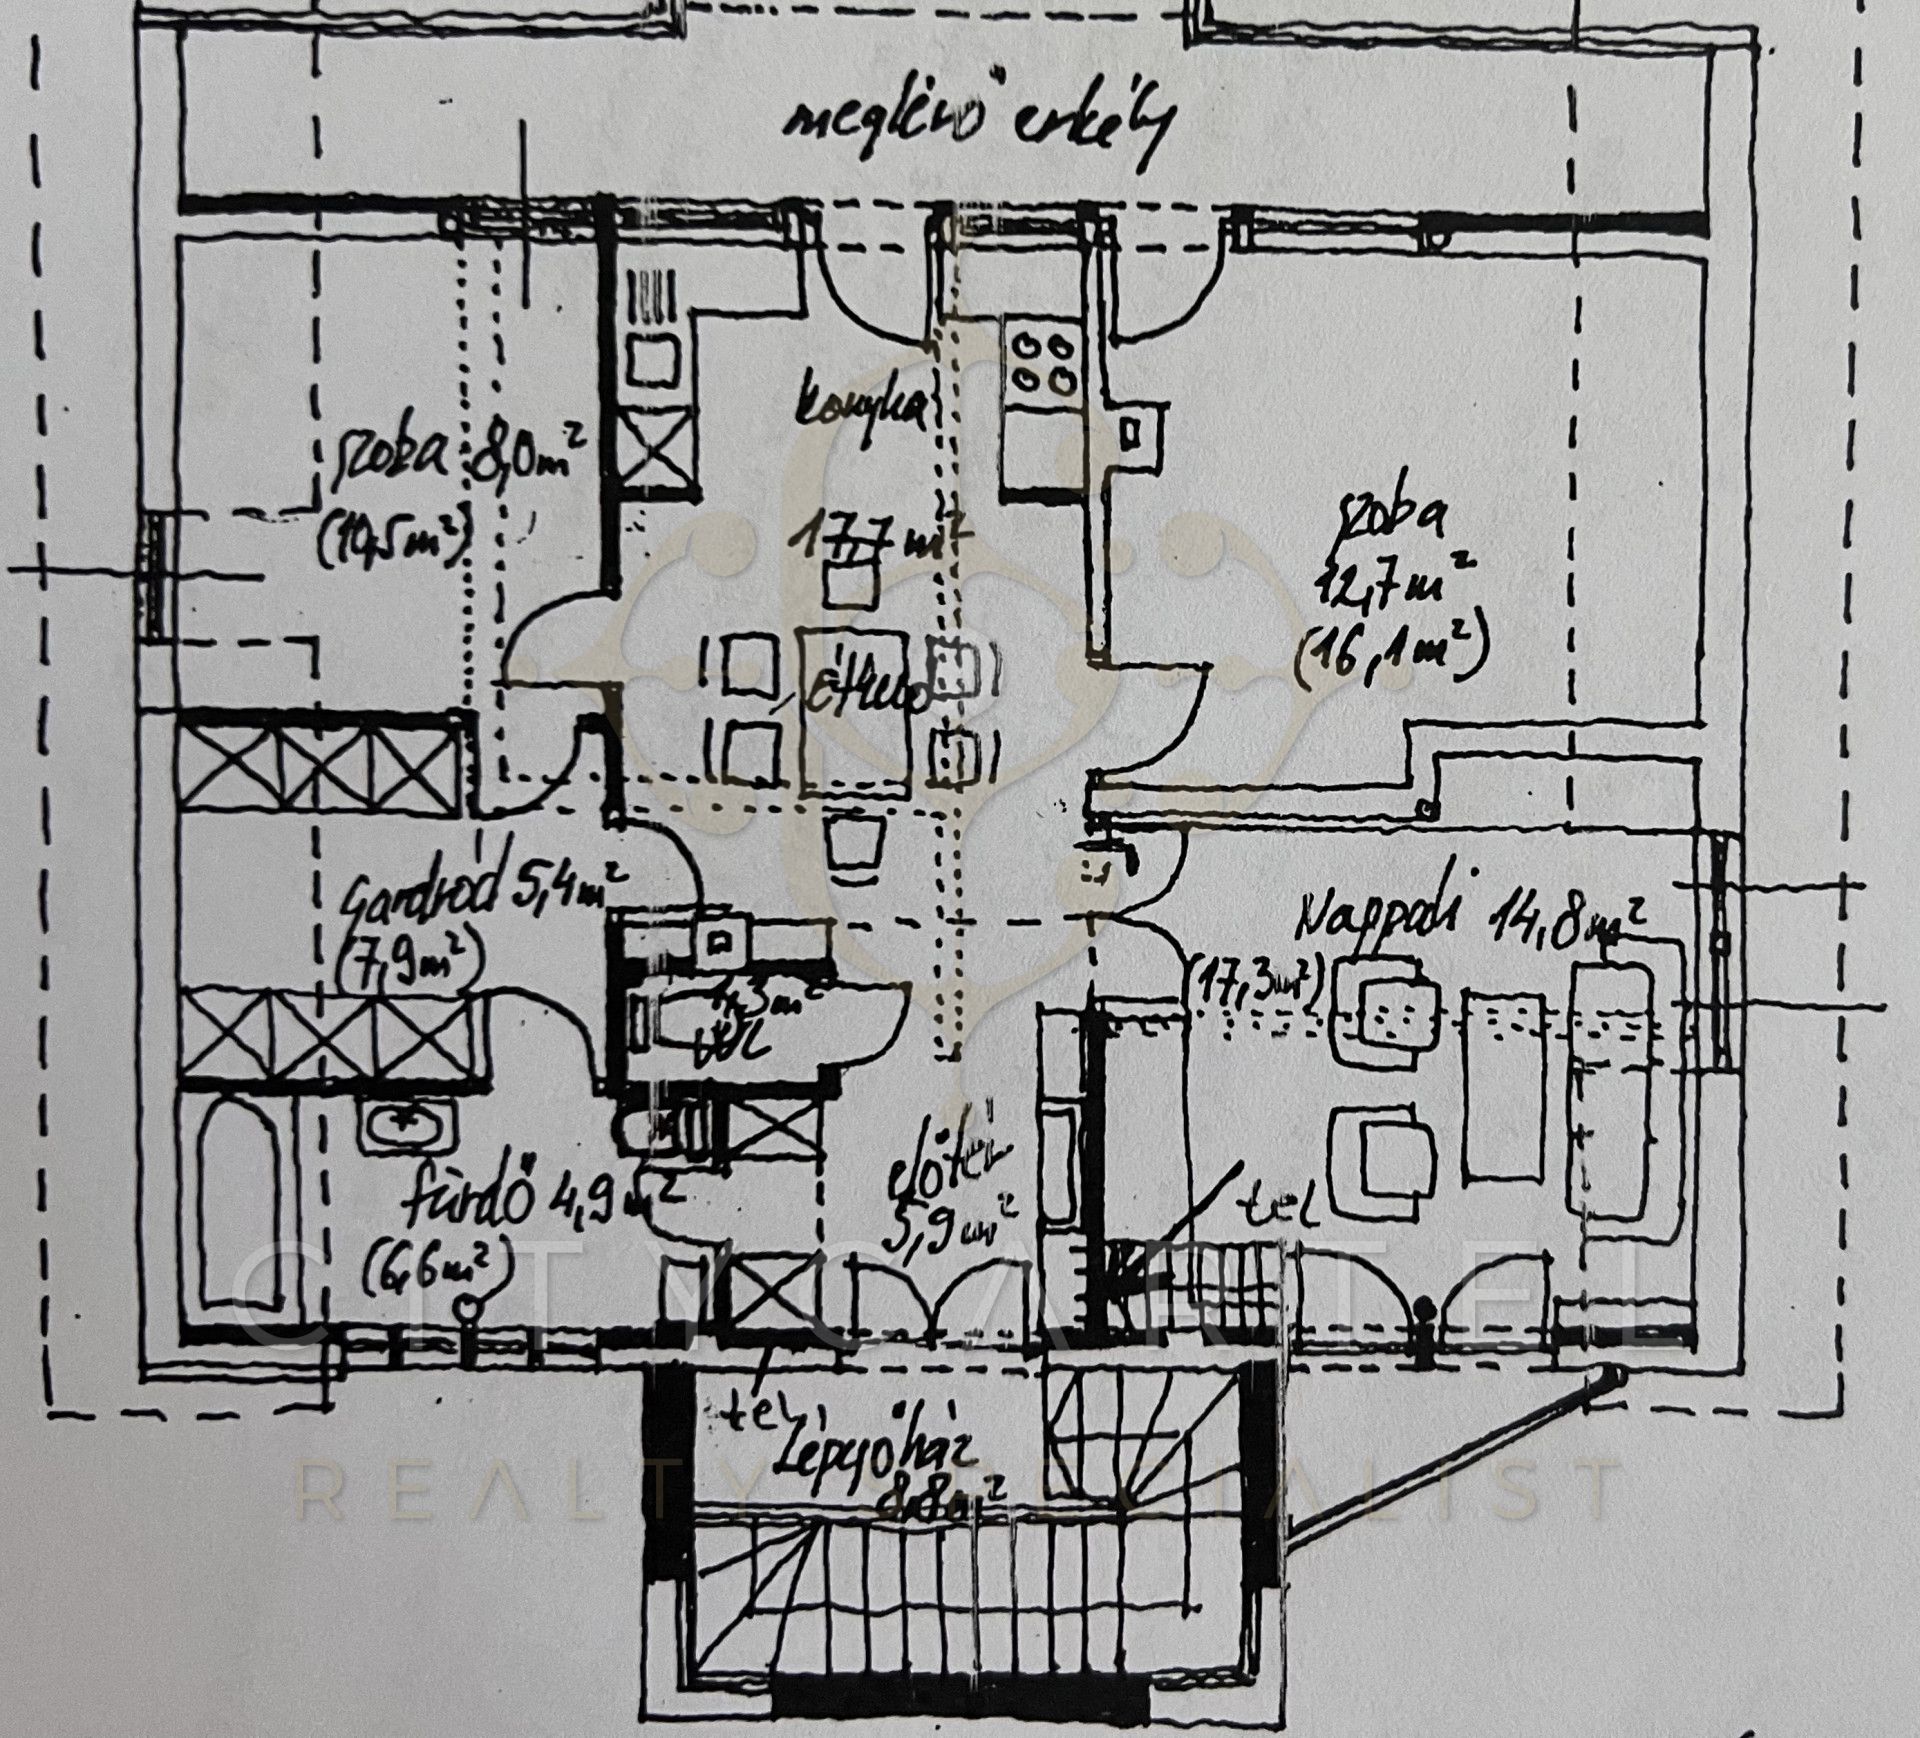 meglévő erkély
konyha
szoba 8,0m²
(10,5m²)
17,7 m²
szoba
12,7m²
(16,1m²)
étkező
Gardrób 5,4m²
(7,9m²)
Nappali 14,8m²
(17,3m²)
1,3m²
WC
előtér
5,9m²
fürdő 4,9m²
(6,6m²)
tel
CITYCARTEL
tel
Lépcsőház
8,8m²
REALTY SPECIALIST